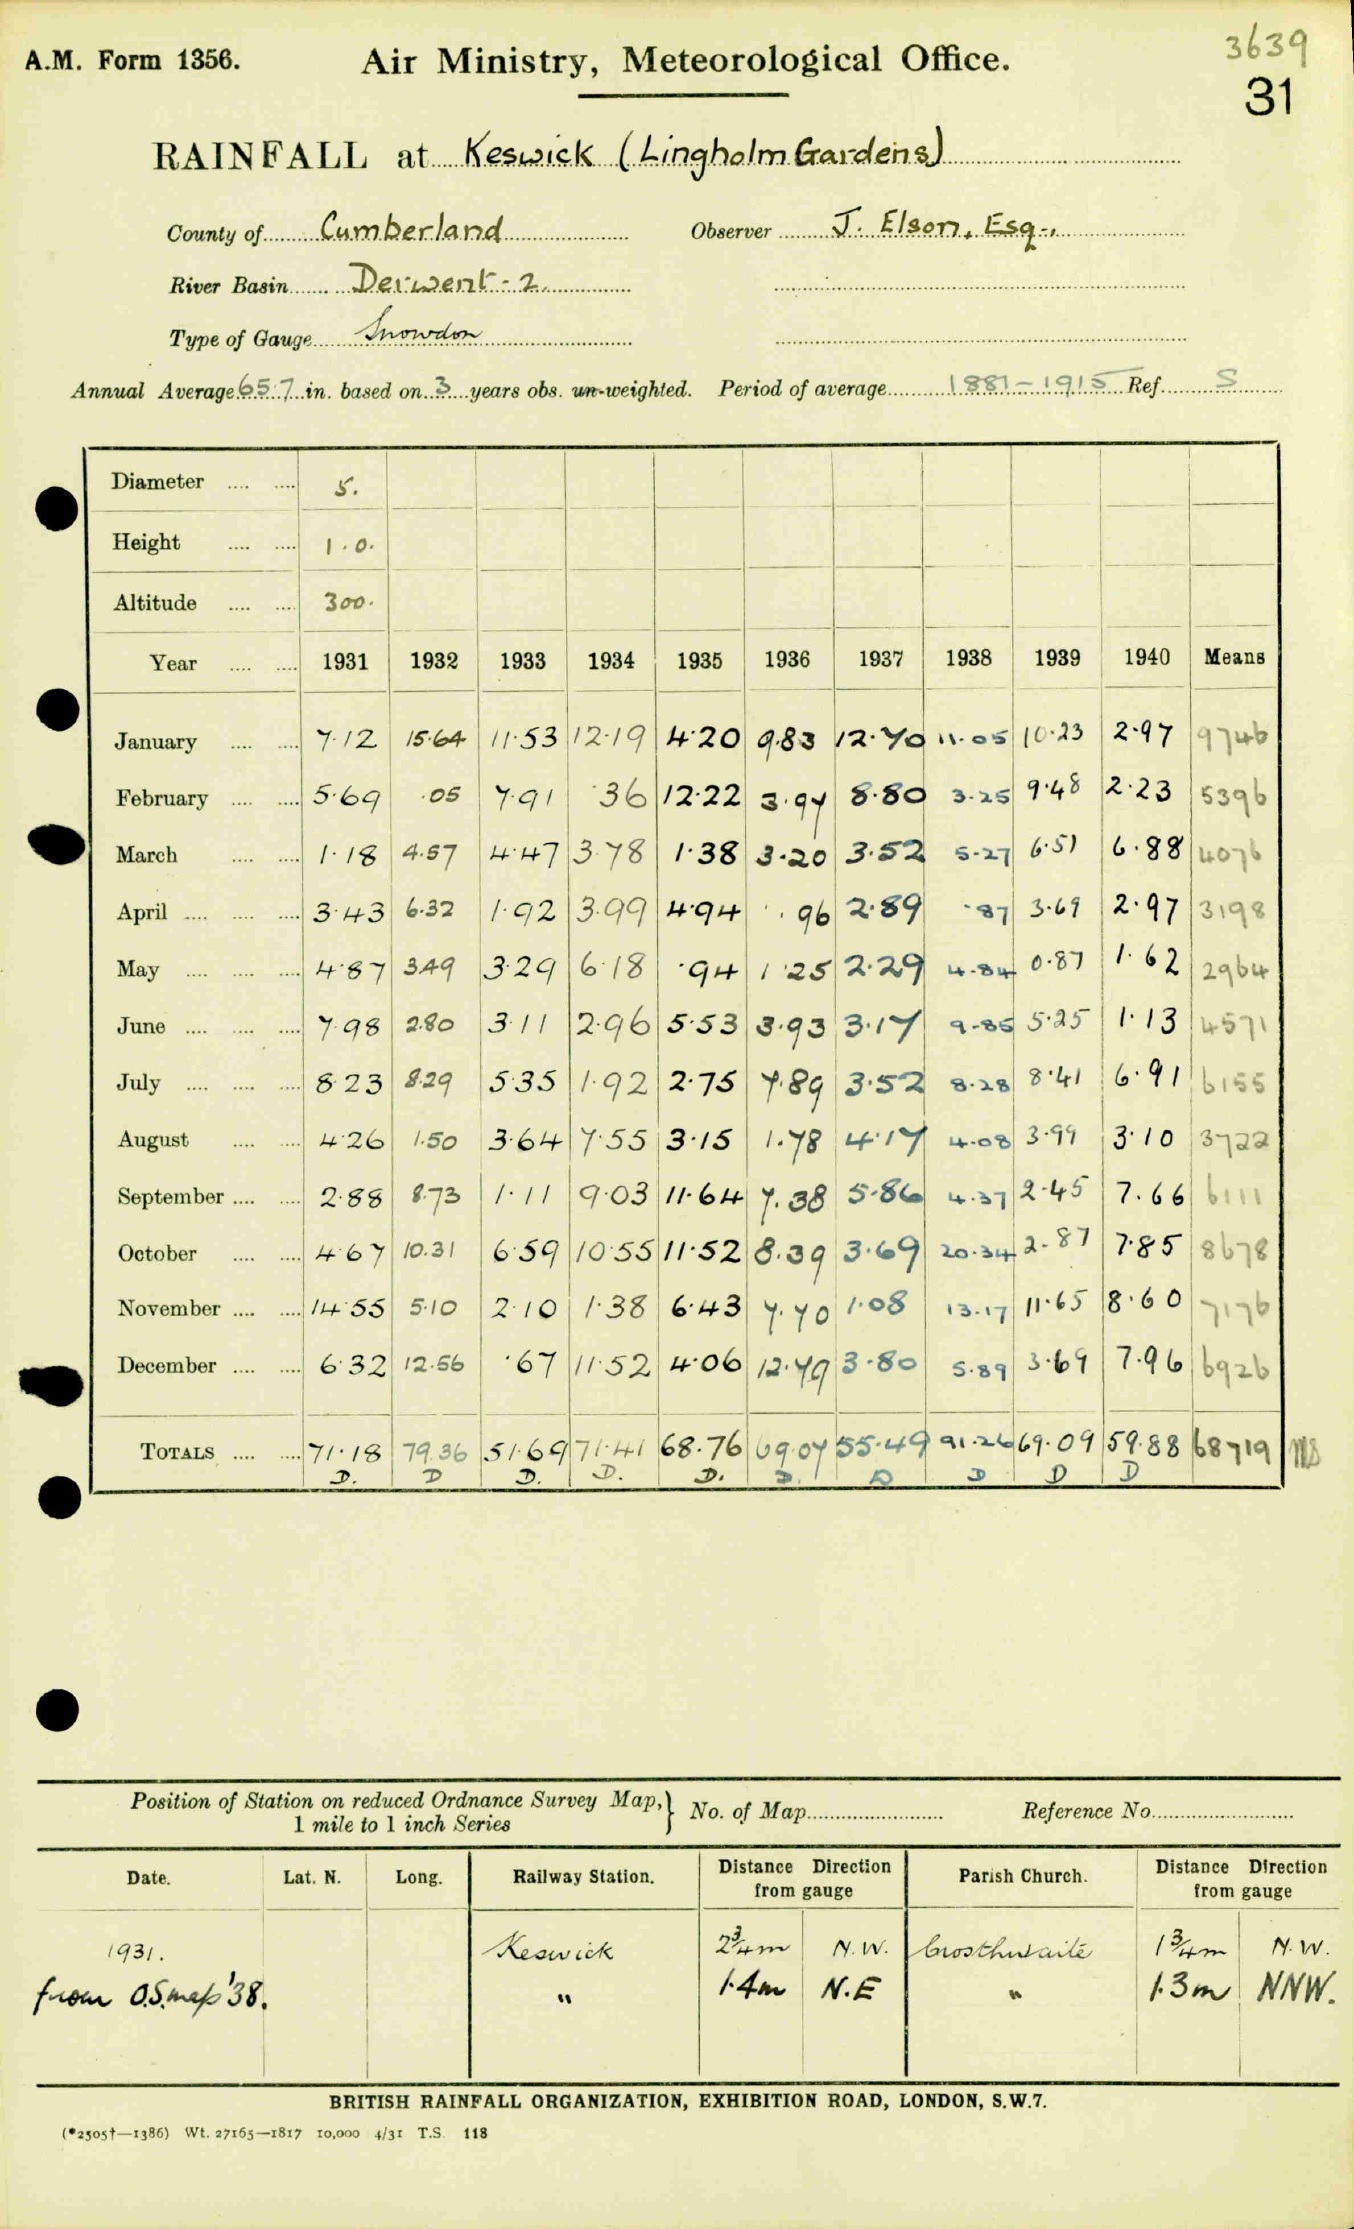 3639
A.M. Form 1356. Air Ministry, Meteorological Office.
31
RAINFALL at Keswick (Lingholm Gardens)
County of Cumberland Observer J. Elson, Esq.,
River Basin Derwent - 2.
Type of Gauge Snowdon
Annual Average 65.7 in. based on 3 years obs. un-weighted. Period of average 1881-1915 Ref. S
Diameter 5.
Height 1.0.
Altitude 300.
Year 1931 1932 1933 1934 1935 1936 1937 1938 1939 1940 Means
January 7.12 15.64 11.53 12.19 4.20 9.83 12.70 11.05 10.23 2.97 9746
February 5.69 .05 7.91 .36 12.22 3.97 8.80 3.25 9.48 2.23 5396
March 1.18 4.57 4.47 3.78 1.38 3.20 3.52 5.27 6.51 6.88 4076
April 3.43 6.32 1.92 3.99 4.94 .96 2.89 .87 3.69 2.97 3198
May 4.87 3.49 3.29 6.18 .94 1.25 2.29 4.84 0.87 1.62 2964
June 7.98 2.80 3.11 2.96 5.53 3.93 3.17 9.85 5.25 1.13 4571
July 8.23 8.29 5.35 1.92 2.75 7.89 3.52 8.28 8.41 6.91 6155
August 4.26 1.50 3.64 7.55 3.15 1.78 4.17 4.08 3.99 3.10 3722
September 2.88 8.73 1.11 9.03 11.64 7.38 5.86 4.37 2.45 7.66 6111
October 4.67 10.31 6.59 10.55 11.52 8.39 3.69 20.34 2.87 7.85 8678
November 14.55 5.10 2.10 1.38 6.43 7.70 1.08 13.17 11.65 8.60 7176
December 6.32 12.56 .67 11.52 4.06 12.79 3.80 5.89 3.69 7.96 6926
TOTALS 71.18 79.36 51.69 71.41 68.76 69.07 55.49 91.26 69.09 59.88 68719
D. D D. D. D. D. D D D D
Position of Station on reduced Ordnance Survey Map, } No. of Map Reference No.
1 mile to 1 inch Series
Date. Lat. N. Long. Railway Station. Distance Direction from gauge Parish Church. Distance Direction from gauge
1931. Keswick 2¾m N.W. Crosthwaite 1¾m N.W.
from O.S. map '38. " 1.4m N.E " 1.3m NNW.
BRITISH RAINFALL ORGANIZATION, EXHIBITION ROAD, LONDON, S.W.7.
(*2505†—1386) Wt. 27165—1817 10,000 4/31 T.S. 118